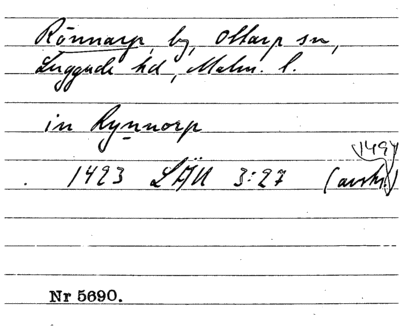 Rönnarp, by, Ottarp sn,
Luggude hd, Malm. l.
in Rynnorp
1497
1423 LÄU 3:27 (avskr.)
Nr 5690.